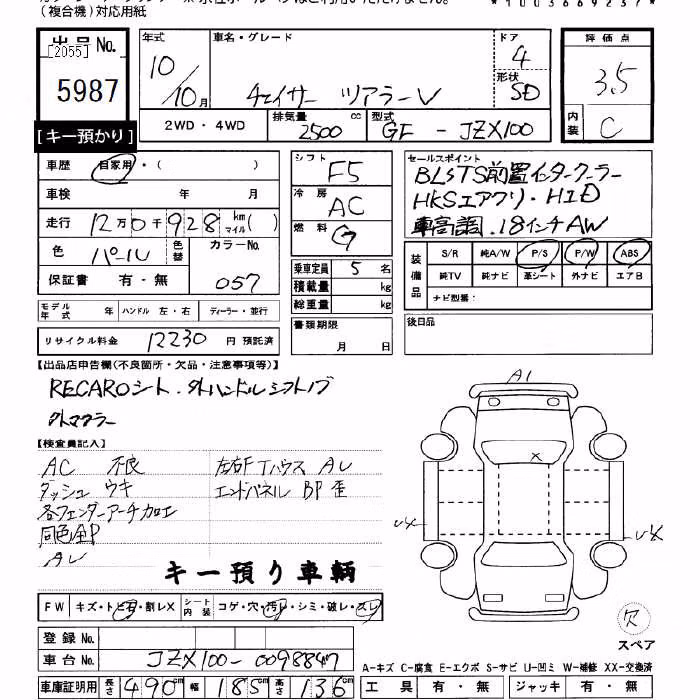 (複合機)対応用紙
出品No.
[2055]
5987
[キー預かり]
年式 車名・グレード ドア 評価点
10/10月 チェイサー ツアラーV 4 3.5
形状 SD
2WD・4WD 排気量 2500 cc 型式 GF - JZX100 内装 C
車歴 自家用・( )
車検 年 月
走行 12万0千928 km マイル( )
色 パール 色替 カラーNo.
保証書 有・無 057
シフト F5
冷房 AC
燃料 G
乗車定員 5 名
積載量 kg
総重量 kg
書類期限
月 日
セールスポイント
BLSTS前置インタークーラー
HKSエアクリ・HID
車高調.18インチAW
装備品 S/R 純A/W P/S P/W ABS
純TV 純ナビ 革シート 外ナビ エアB
ナビ型番:
後日品
モデル年式 年 ハンドル 左・右 ディーラー・並行
リサイクル料金 12230 円 預託済
【出品店申告欄(不良箇所・欠品・注意事項等)】
RECAROシート.外ハンドルシフトノブ
外マフラー
【検査員記入】
AC 不良 左右FTハウス AU
ダッシュ ウキ エンドパネル BP歪
各フェンダーアーチカロエ
同色全P
AU
キー預り車輌
A1
FW キズ・トビ石・割レX シート内装 コゲ・穴・汚レ・シミ・破レ・スレ
登録No.
車台No. JZX100-0098847
車庫証明用 長さ 490cm 幅 185cm 高さ 136cm
欠
スペア
A-キズ C-腐食 E-エクボ S-サビ U-凹ミ W-補修 XX-交換済
工具 有・無 ジャッキ 有・無